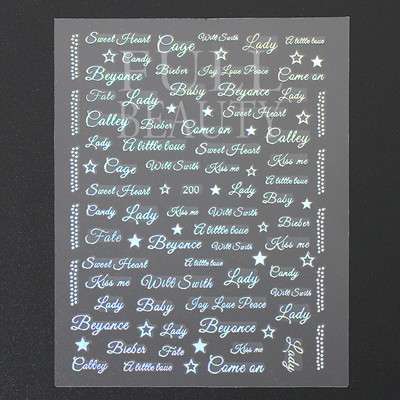 Sweet Heart Cage Will Swith Lady A little loue
Candy
Beyonce Bieber Joy Loue Peace Come on
FULL
Fate Lady Baby Beyonce Lady
BEAUTY
Calley Bieber Come on Sweet Heart Calley
Lady A little loue Kiss me
Cage Will Swith Kiss me A little loue
Sweet Heart 200 Lady Baby
Candy Lady Kiss me A little loue Bieber
Fate Beyonce Will Swith Kiss me
Sweet Heart A little loue Candy
Kiss me Will Swith Lady
Lady Baby Joy Loue Peace Kiss me
Beyonce Lady Beyonce
Bieber Fate Kiss me Lady
Calley A little loue Come on